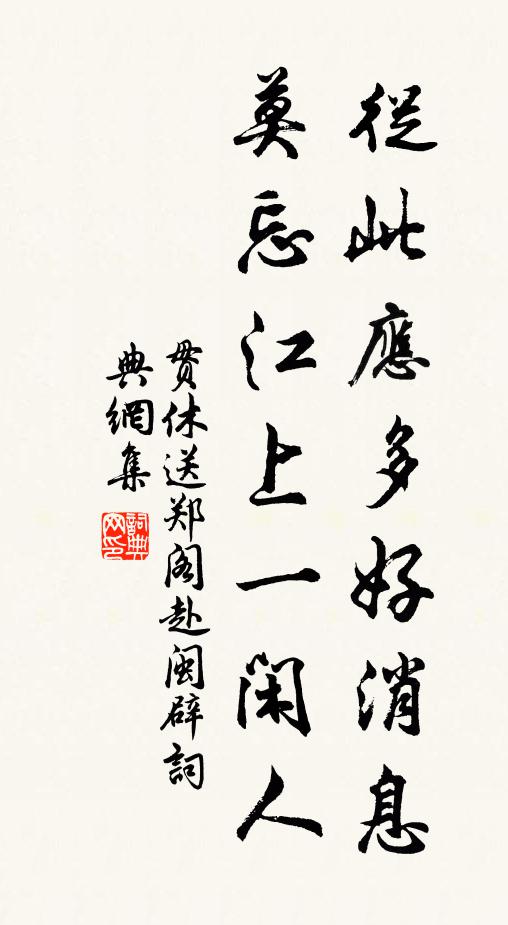 從此應多好消息
莫忘江上一閑人
贯休送郑阁赴闽辟詞
典網集
詞典网印